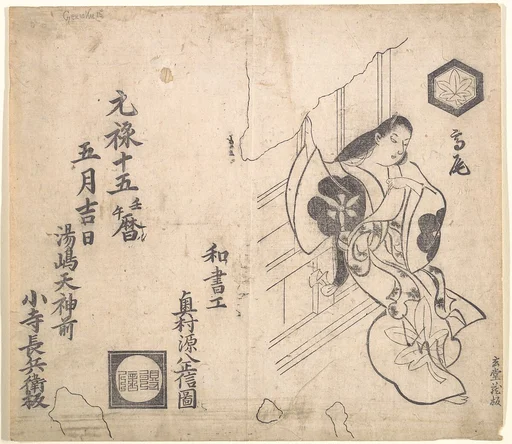 高尾
玄堂蔵板
和書工
奥村源八正信圖
元禄十五壬午暦
五月吉日
湯嶋天神前
小寺長兵衛板